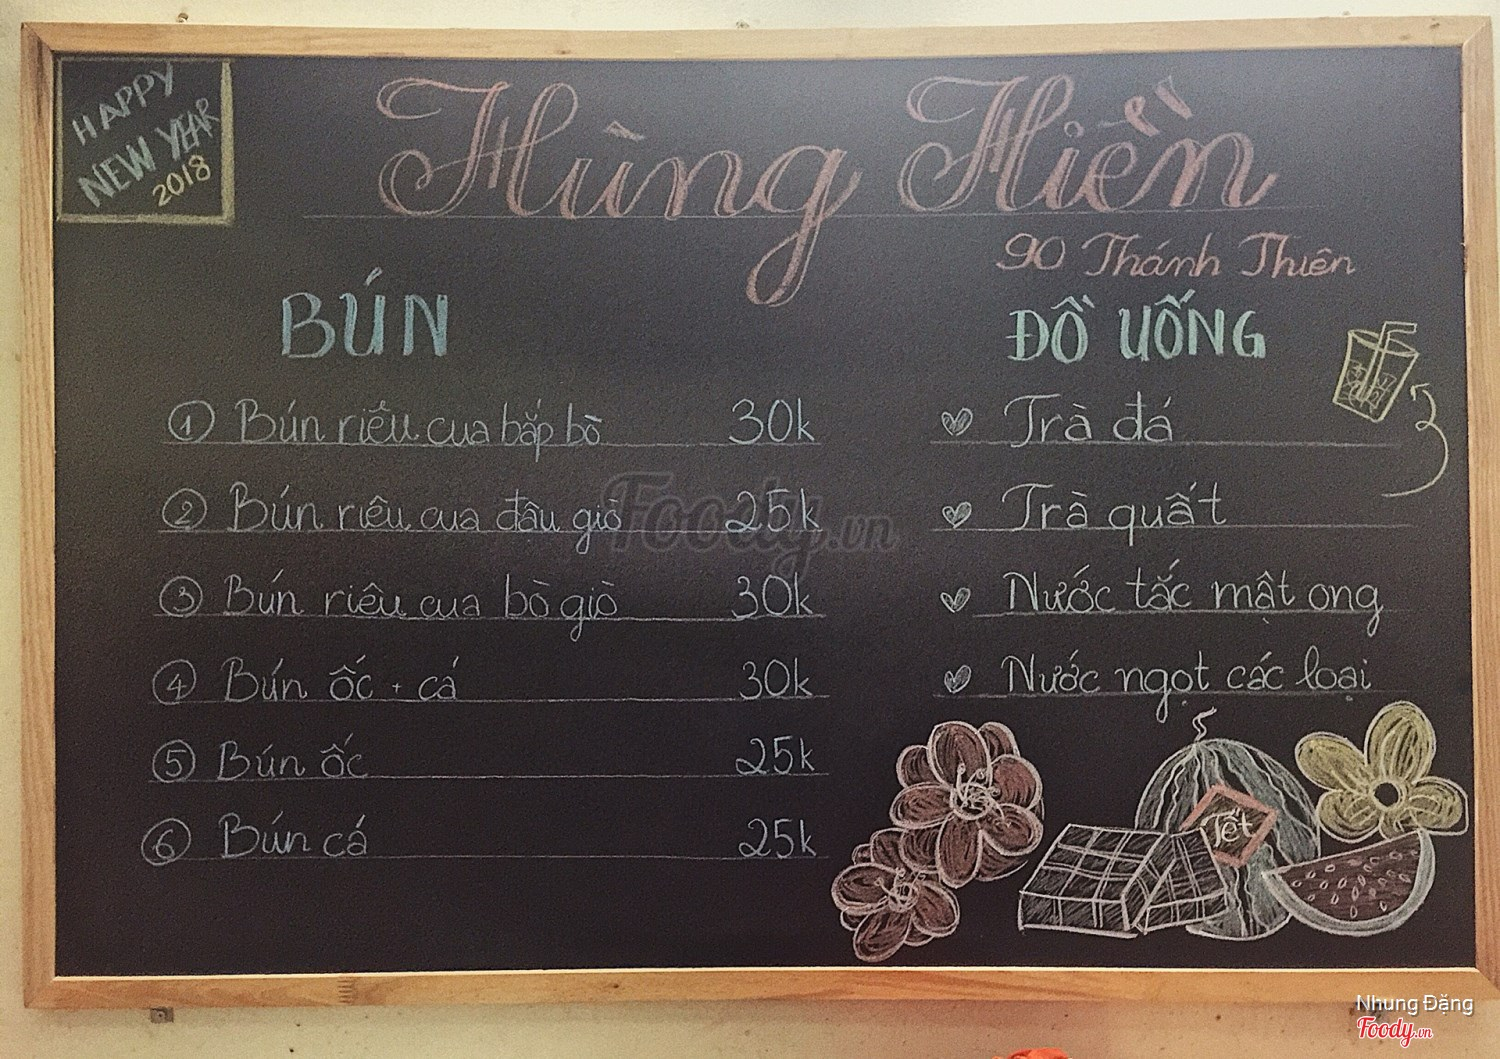 HAPPY
NEW YEAR
2018
Hùng Hiền
90 Thánh Thiên
BÚN
① Bún riêu cua bắp bò 30k
② Bún riêu cua đâu giò 25k
③ Bún riêu cua bò giò 30k
④ Bún ốc + cá 30k
⑤ Bún ốc 25k
⑥ Bún cá 25k
ĐỒ UỐNG
Trà đá
Trà quất
Nước tắc mật ong
Nước ngọt các loại
Tết
Foody.vn
Nhung Đặng
Foody.vn